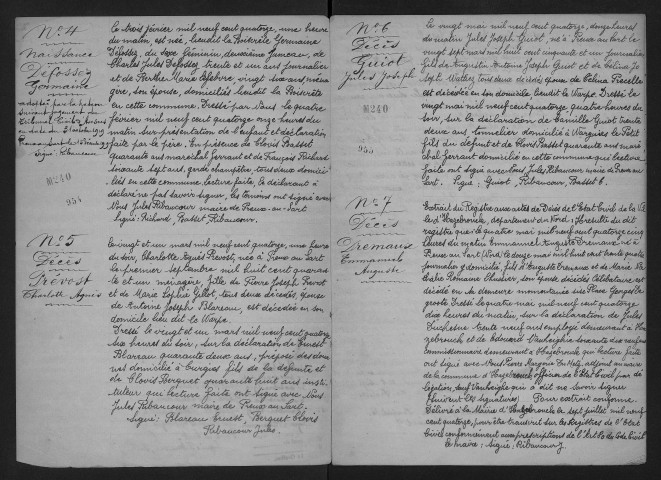 N° 4
Naissance
Defossez
Germaine
Le trois février mil neuf cent quatorze, une heure
du matin, est née, lieudit la Poiserette Germaine
Defossez, du sexe féminin, deuxième jumeau, de
Charles Jules Defossez trente et un ans journalier
et de Berthe Marie Lefebvre, vingt six ans ménagère,
son épouse, domiciliés lieudit la
en cette commune. Dressé par Nous le quatre
février mil neuf cent quatorze onze heures du
matin sur présentation de l'enfant et déclaration
faite par le père. En présence de Clovis Basset
quarante ans maréchal ferrant et de François Richard
soixante sept ans, garde champêtre, tous deux domiciliés
en cette commune, lecture faite, le déclarant a
déclaré ne pas savoir signer, les témoins ont signé avec
Nous Jules Ribaucour maire de Preux au Sart
Signé: Richard, Basset, Ribaucour.
M240
954
N° 5
Décès
Prevost
Charlotte Agnès
Le vingt et un mars mil neuf cent quatorze, une heure
du soir, Charlotte Agnès Prevost, née à Preux au Sart
le premier septembre mil huit cent
et un ménagère fille de Pierre Joseph Prevost
et de Marie Sophie Gillot, tous deux décédés, épouse
de Antoine Joseph Blareau, est décédée en son
domicile lieu dit le Warpe.
Dressé le vingt et un mars mil neuf cent quatorze
six heures du soir, sur la déclaration de Ernest
Blareau quarante deux ans, préposé des douanes
domicilié à fils de la défunte et
de Clovis Berguet quarante huit ans instituteur
qui lecture faite ont signé avec Nous
Jules Ribaucour maire de Preux au Sart.
Signé: Blareau Ernest, Berguet Clovis
Ribaucour Jules.
N° 6
Décès
Guiot
Jules Joseph
M240
954
Le vingt mai mil neuf cent quatorze, heures
du matin Jules Joseph Guiot, né à Preux au Sart le
vingt sept mars mil huit cent cinquante et un journalier
fils de Augustin Antoine Joseph Guiot et de
Joseph tous deux décédés époux de Celina
est décédé en son domicile lieudit le Warpe. Dressé le
vingt mai mil neuf cent quatorze, quatre heures du
soir, sur la déclaration de Camille Guiot trente
deux ans tonnelier domicilié à Wargnies le Petit
fils du défunt et de Clovis Basset quarante ans maréchal
ferrant domicilié en cette commune qui lecture
faite ont signé avec Nous Jules Ribaucour maire de Preux au
Sart. Signé: Guiot, Ribaucour, Basset C.
N° 7
Décès
Dremaux
Emmanuel
Auguste
Extrait du Registre aux actes de Décès de l'Etat Civil de la Ville
d'Hazebrouck, département du Nord; il résulte du dit
registre que le quatre mai mil neuf cent quatorze cinq
heures du matin Emmanuel Auguste Dremaux né à
Preux au Sart (Nord) le douze mai mil huit cent trente quatre
journalier y domicilié, fils d'Auguste Dremaux et de Marie
Romaine son épouse, décédés, célibataire, est
décédé en la demeure momentanée sise
Dressé le quatre mai mil neuf cent quatorze
dix heures du matin, sur la déclaration de Jules
Duchesne trente neuf ans employé demeurant à Hazebrouck
et de Edouard soixante dix neuf ans
commissionnaire demeurant à Hazebrouck, qui lecture faite
ont signé avec Nous adjoint au maire
de la commune d'Hazebrouck officier de l'Etat Civil par délégation,
sauf qui a dit ne savoir signer
(suivent les signatures) Pour extrait conforme.
Délivré à la Mairie d'Hazebrouck le sept juillet mil neuf
cent quatorze, pour être transcrit sur les Registres de l'Etat
Civil conformément aux prescriptions de l'Art 80 du Code Civil
Le maire; Signé: Ribaucour J.